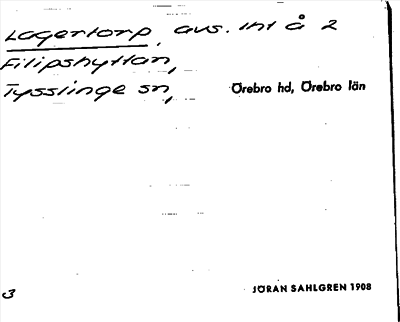 Lagertorp, avs. int å 2
Filipshyttan,
Tysslinge sn, Örebro hd, Örebro län
3
JÖRAN SAHLGREN 1908